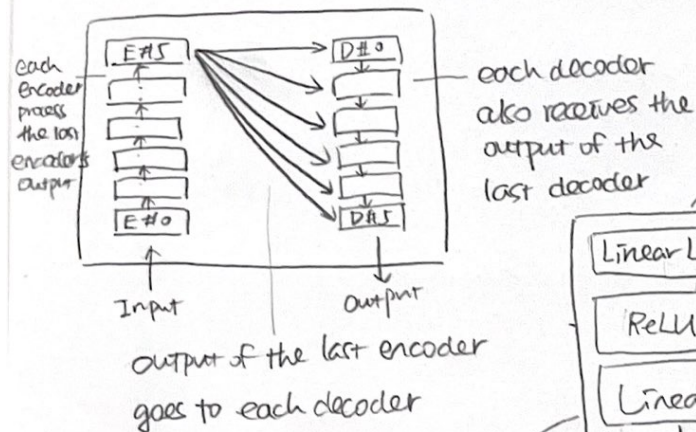 E#5
D#0
each
encoder
process
the last
encoder's
output
E#0
D#5
Input
output
each decoder
also receives the
output of the
last decoder
output of the last encoder
goes to each decoder
Linear L
ReLU
Linea